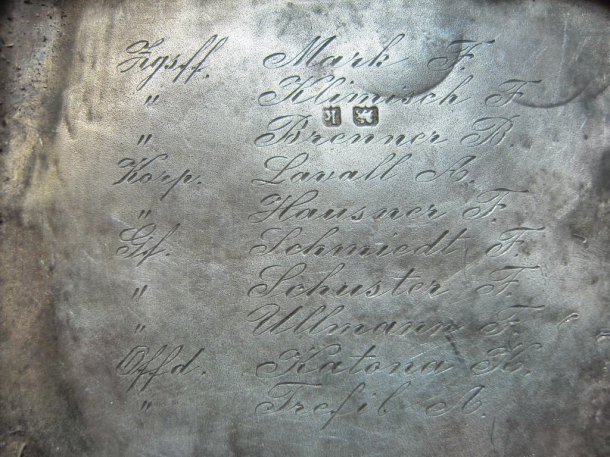 Zgsff. Mark F.
" Klimisch F.
" Brenner B.
Korp. Lavall A.
" Hausner F.
Gf. Schmiedt F.
" Schuster F.
" Ullmann F.
Offd. Katona K.
" Trefil A.